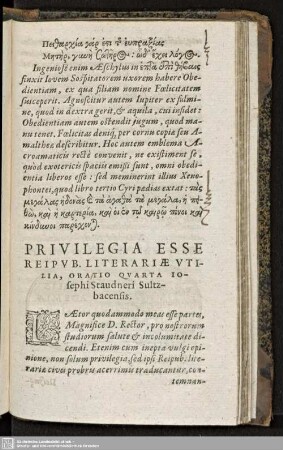 Πειθαρχία γάρ ἐστι τ εὐπραξίας
Μήτηρ, γυνὴ Σωτῆρος: ὧδ᾽ ἔχει λόγος.
Ingeniosè enim Æschylus in
finxit Iovem Sospitatorem uxorem habere Obe-
dientiam, ex qua filiam nomine Fœlicitatem
susceperit. Agnoscitur autem Iupiter ex fulmi-
ne, quod in dextra gerit, & aquila, cui insidet:
Obedientiam autem ostendit iugum, quod ma-
nu tenet. Fœlicitas deniq́; per cornu copiæ seu A-
maltheæ describitur. Hoc autem emblema A-
croamaticis rectè convenit, ne existiment se,
quòd exotericis fascijs emissi sunt, omni obedi-
entia liberos esse: sed meminerint illius Xeno-
phontei, quod libro tertio Cyri pædias extat: τὰς
μεγάλας ἡδονὰς καὶ τὰ ἀγαθὰ τὰ μεγάλα, ἡ πει-
θὼ, καὶ ἡ καρτερία, καὶ οἱ ἐν τῷ καιρῷ πόνοι καὶ
κίνδυνοι παρέχον).
PRIVILEGIA ESSE
REIPVB. LITERARIÆ VTI-
LIA, ORATIO QVARTA IO-
sephi Staudneri Sultz-
bacensis.
LÆtor quodammodo meas esse partes,
Magnifice D. Rector, pro nostrorum
studiorum salute & incolumitate di-
cendi. Etenim cum inepta vulgi opi-
nione, non solùm privilegia, sed ipsi Reipub. lite-
rariæ cives probrè acerrimis traducantur, con-
temnan-